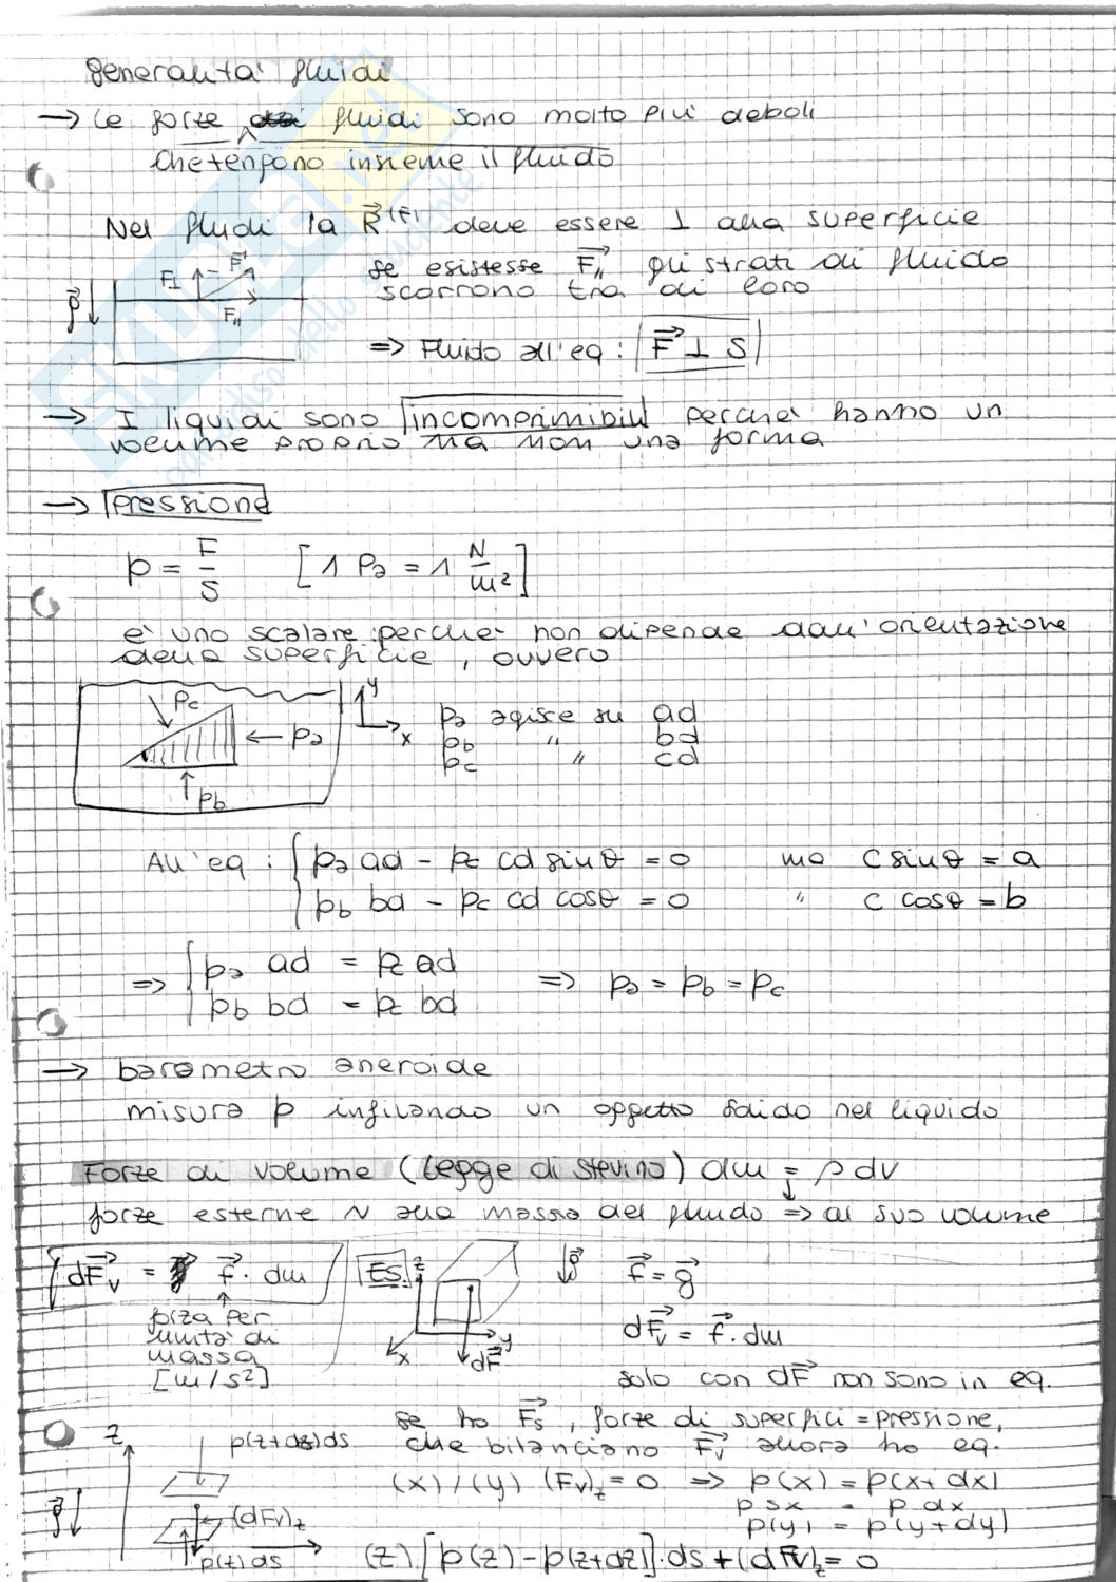 generalità fluidi
→ Le forze fluidi sono molto più deboli
che tengono insieme il fluido
Nei fluidi la R⃗⁽ᶠ⁾ deve essere ⊥ alla superficie
se esistesse F⃗∥ gli strati di fluido
scorrono tra di loro
F⊥ F⃗
F∥
g⃗
⇒ Fluido all'eq: F⃗ ⊥ S
→ I liquidi sono incomprimibili perché hanno un
volume proprio ma non una forma
→ Pressione
p = F/S [1 Pa = 1 N/m²]
è uno scalare perché non dipende dall'orientazione
della superficie, ovvero
pc y
x
← pa
pb
pa agisce su ad
pb " bd
pc " cd
All'eq: { pa ad - pc cd sinθ = 0 ma c sinθ = a
pb bd - pc cd cosθ = 0 " c cosθ = b
⇒ { pa ad = pc ad ⇒ pa = pb = pc
pb bd = pc bd
→ barometro aneroide
misura p infilando un oggetto solido nel liquido
Forze di volume (Legge di Stevino) dm = ρ dv
forze esterne ~ alla massa del fluido ⇒ al suo volume
dF⃗v = f⃗ · dm ES. z g⃗ f⃗ = g⃗
forza per
unità di
massa
[m/s²]
x y dF⃗
dF⃗v = f⃗ · dm
solo con dF⃗ non sono in eq.
se ho F⃗s, forze di superfici = pressione,
che bilanciano F⃗v allora ho eq.
z p(z+dz)ds
g⃗ (dFv)z
p(z) ds
(x)/(y) (Fv)z = 0 ⇒ p(x) = p(x+dx)
p sx = p dx
p(y) = p(y+dy)
(z) [p(z) - p(z+dz)] · ds + (dFv)z = 0